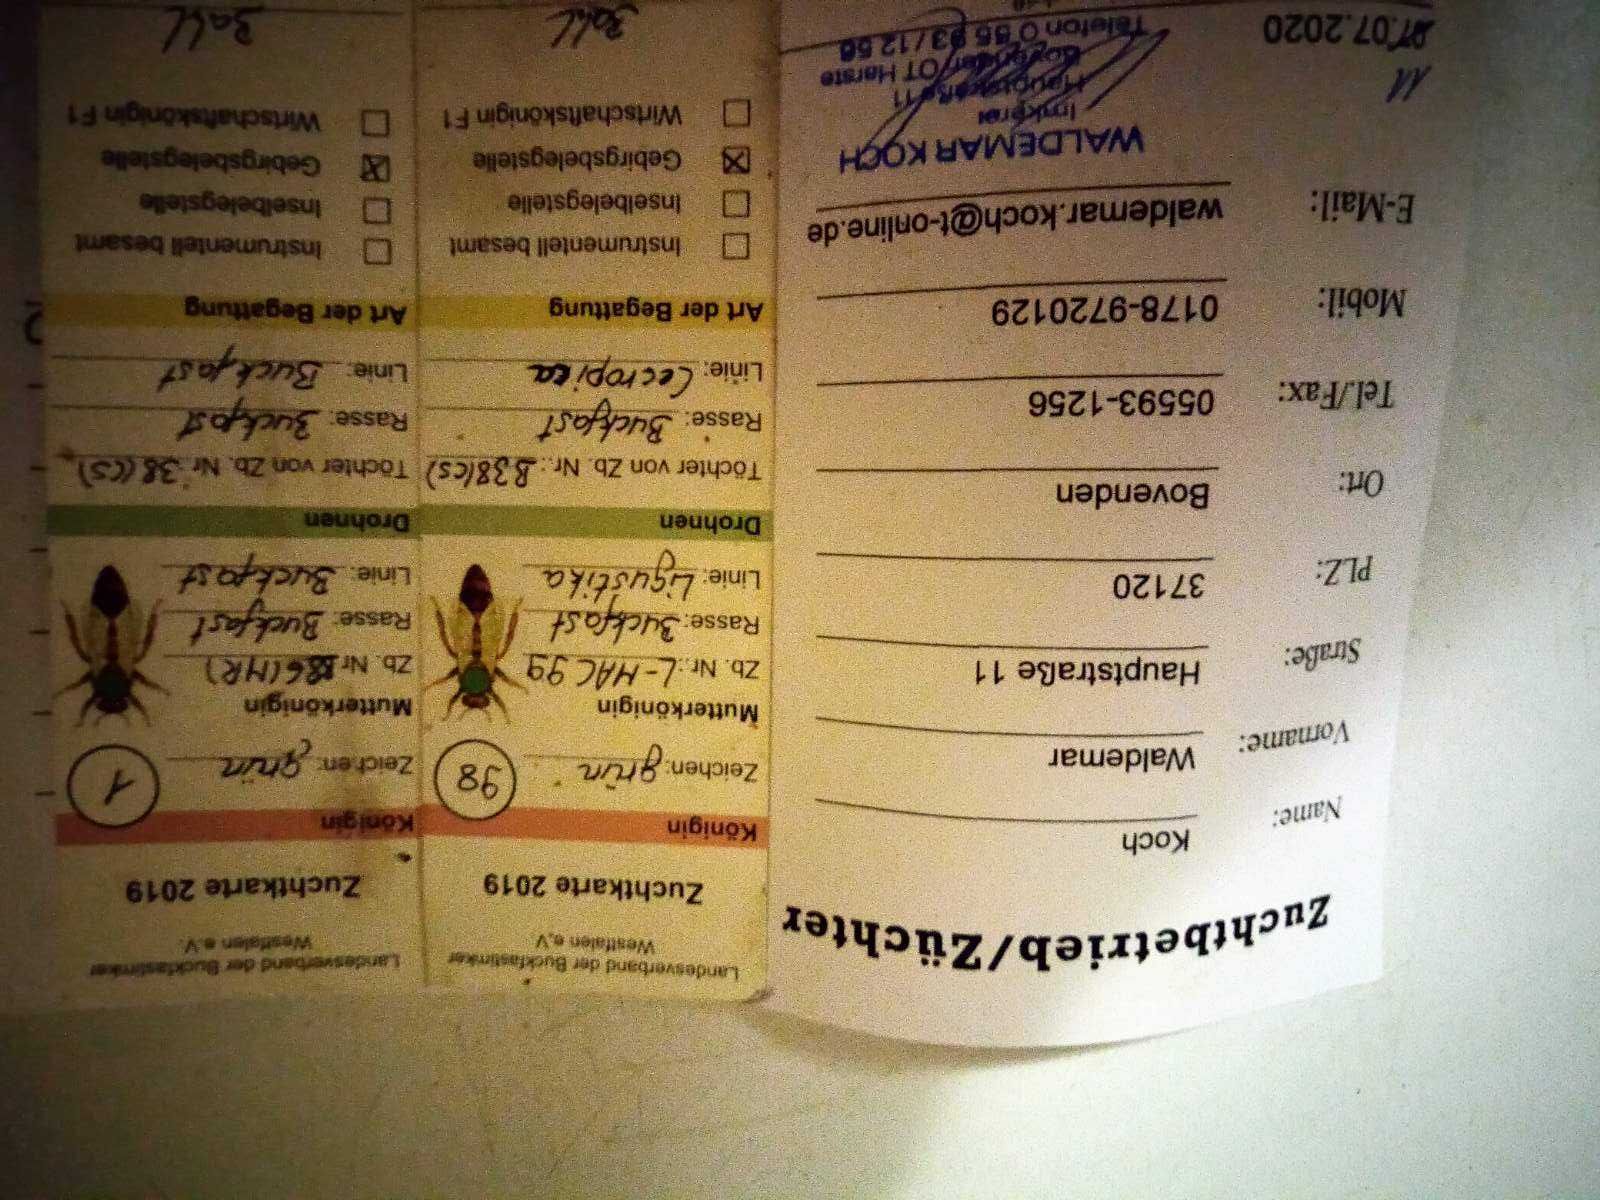 Zuchtbetrieb/Züchter
Name: Koch
Vorname: Waldemar
Straße: Hauptstraße 11
PLZ: 37120
Ort: Bovenden
Tel./Fax: 05593-1256
Mobil: 0178-9720129
E-Mail: waldemar.koch@t-online.de
WALDEMAR KOCH
Imkerei
Hauptstraße 11
Bovenden OT Harste
Telefon 0 55 93 / 12 56
.07.2020
Landesverband der Buckfastimker
Westfalen e.V.
Zuchtkarte 2019
Königin
Zeichen: grün
98
Mutterkönigin
Zb. Nr.: L-HAC 99
Rasse: Buckfast
Linie: Ligustika
Drohnen
Töchter von Zb. Nr.: B38(CS)
Rasse: Buckfast
Linie: Cecropica
Art der Begattung
Instrumentell besamt
Inselbelegstelle
Gebirgsbelegstelle
Wirtschaftskönigin F1
Landesverband der Buckfastimker
Westfalen e.V.
Zuchtkarte 2019
Königin
Zeichen: grün
1
Mutterkönigin
Zb. Nr (MR)
Rasse: Buckfast
Linie: Buckfast
Drohnen
Töchter von Zb. Nr. 38(CS)
Rasse: Buckfast
Linie: Buckfast
Art der Begattung
Instrumentell besamt
Inselbelegstelle
Gebirgsbelegstelle
Wirtschaftskönigin F1